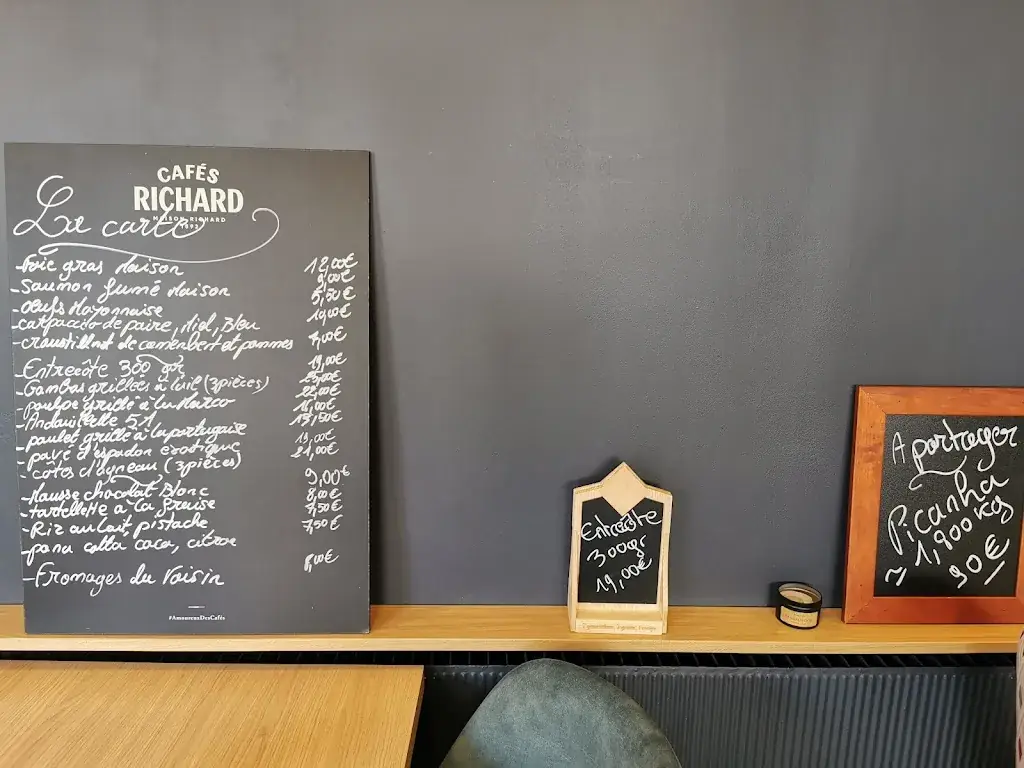 CAFÉS
RICHARD
MAISON RICHARD
1892
La carte
- Foie gras Maison 12,00€
- Saumon fumé Maison 9,00€
- Œufs Mayonnaise 5,50€
- carpaccio de poire, Miel, Bleu 10,00€
- croustillant de camenbert et pommes 7,00€
- Entrecôte 300 gr 19,00€
- Gambas grillées à l'ail (3 pièces) 25,00€
- poulpe grillé à la Marco 22,00€
- Andouillette 5A 18,00€
- poulet grillé à la portugaise 15,50€
- pavé d'espadon exotique 19,00€
- côtes d'agneau (3 pièces) 21,00€
- Mousse chocolat Blanc 9,00€
- tartellette à la fraise 8,00€
- Riz au lait, pistache 7,50€
- pana cotta coco, citron 7,50€
- Fromages du Voisin 8,00€
#AmoureuxDesCafés
Entrecôte
300gr
19,00€
A partager
Picanha
~ 1,800 kg
90€